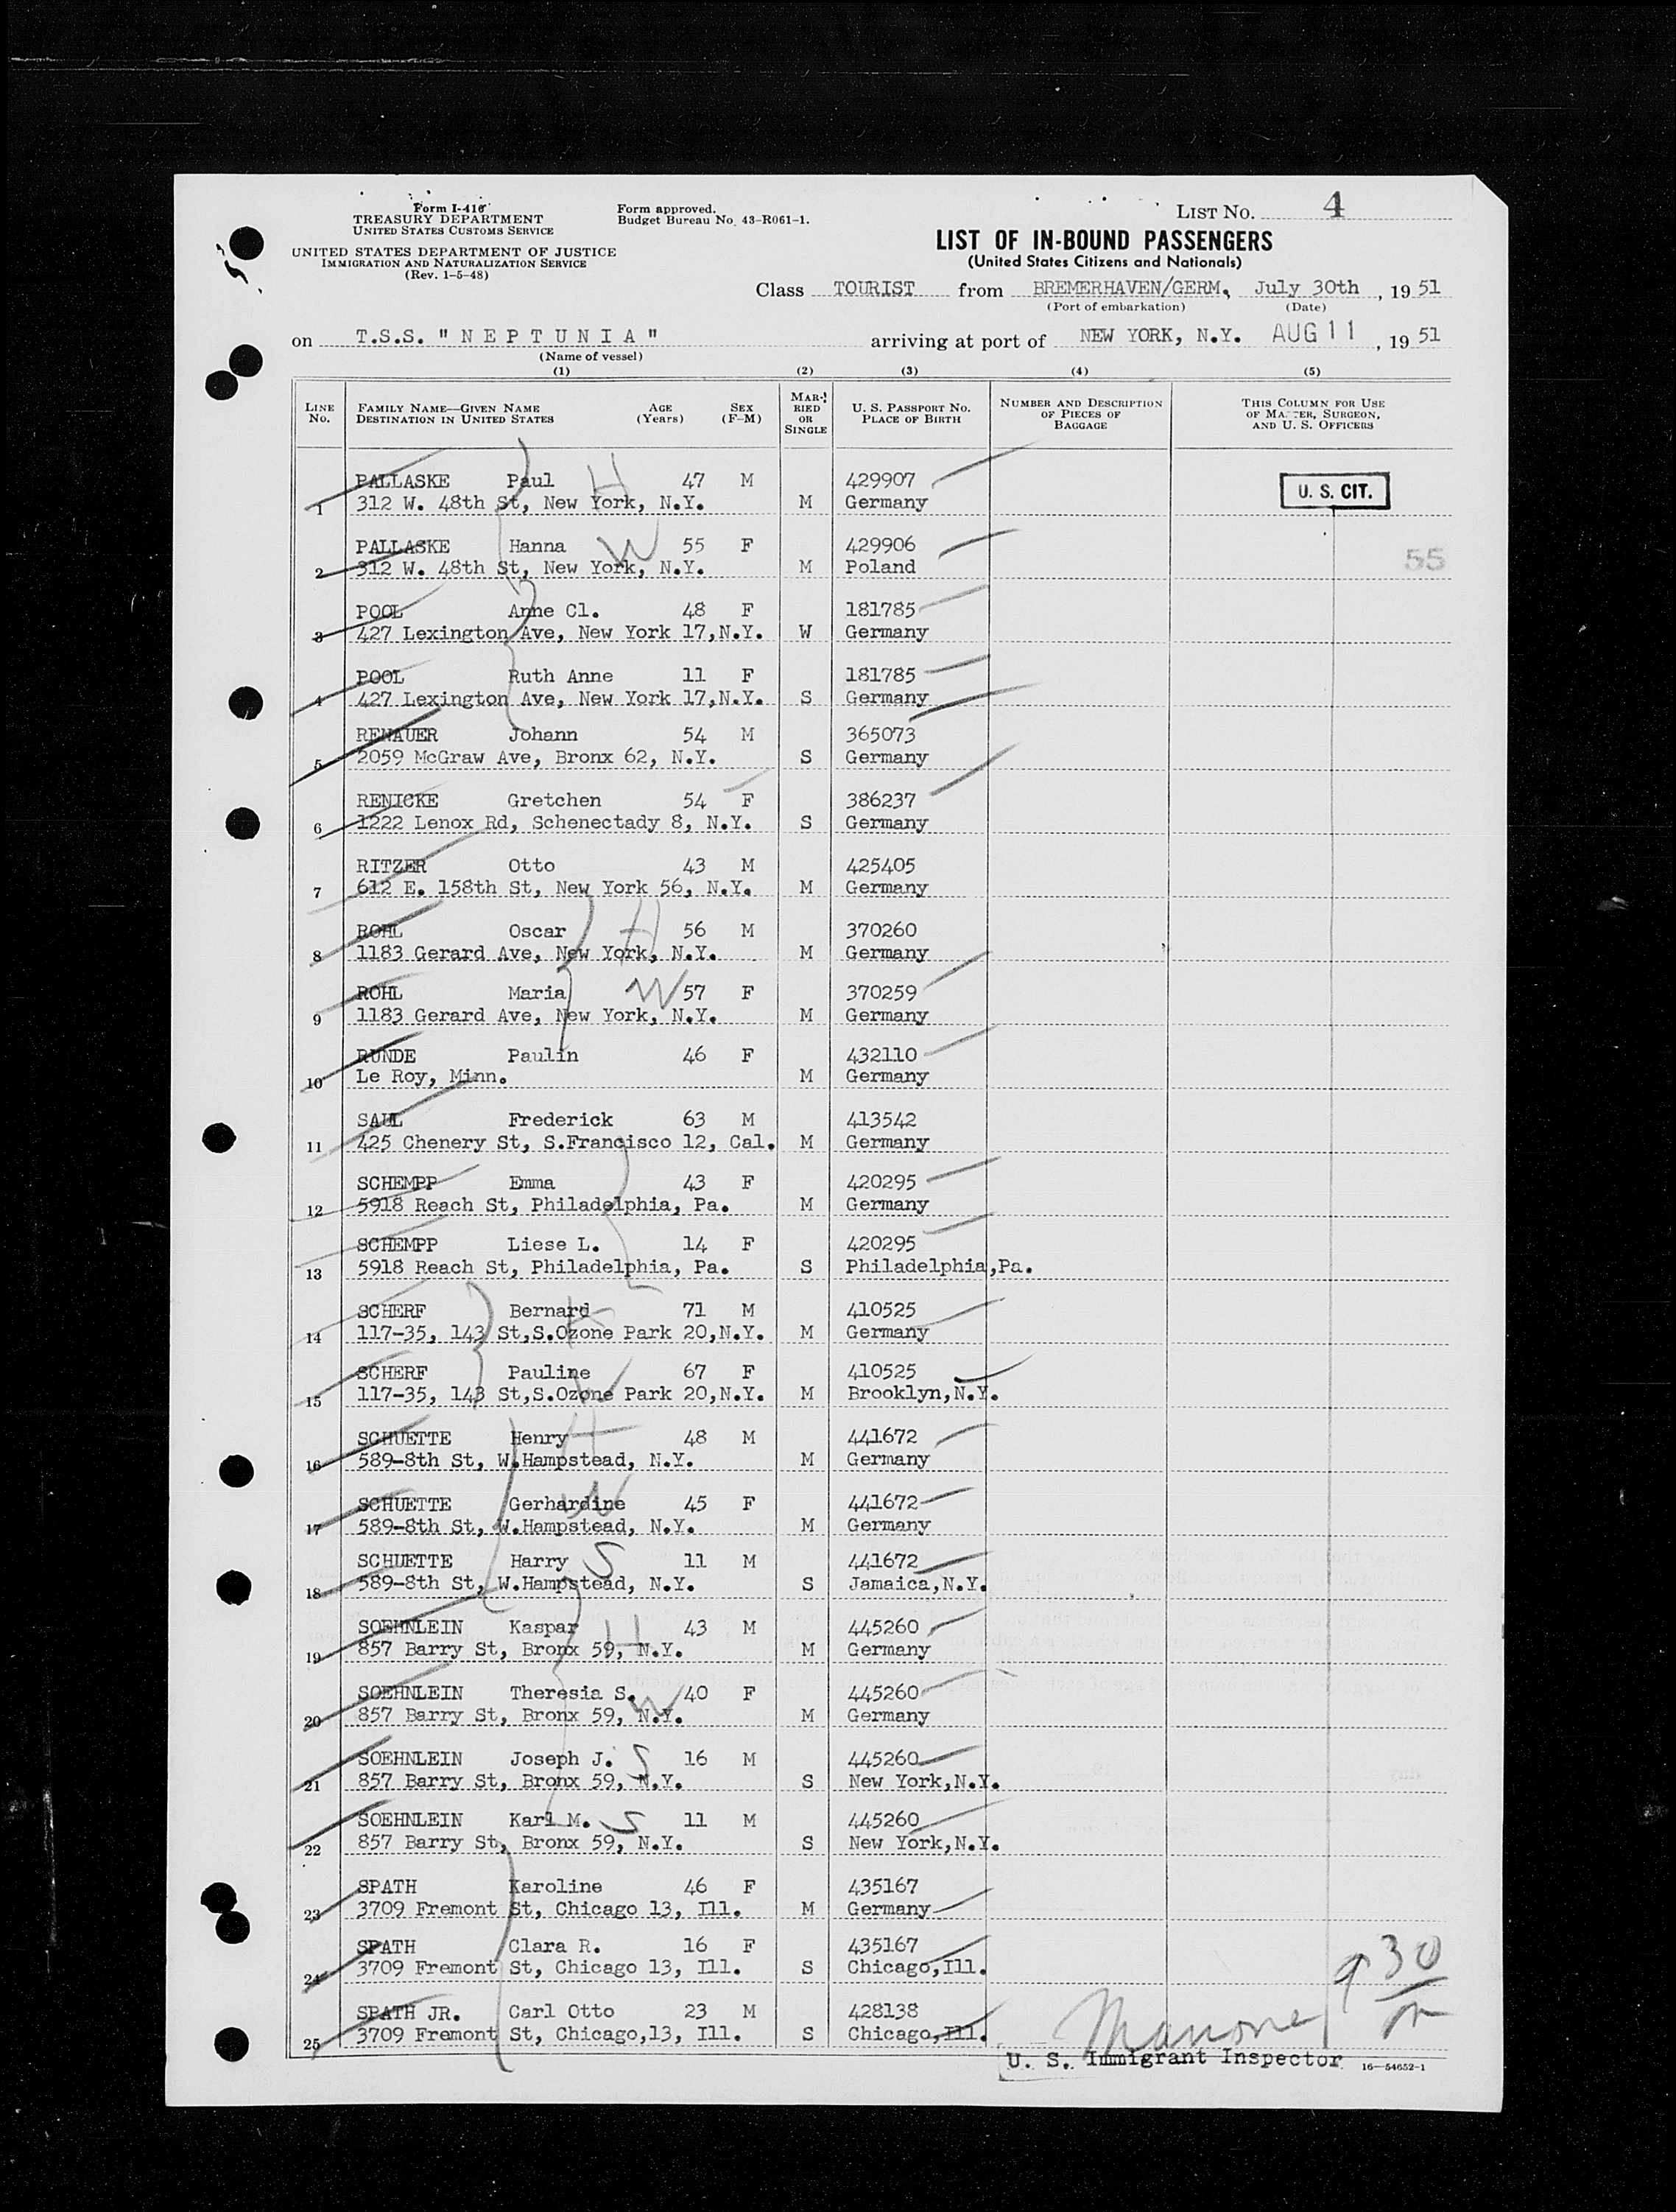 Form I-416
TREASURY DEPARTMENT
UNITED STATES CUSTOMS SERVICE
UNITED STATES DEPARTMENT OF JUSTICE
IMMIGRATION AND NATURALIZATION SERVICE
(Rev. 1-5-48)
Form approved.
Budget Bureau No. 43-R061-1.
LIST NO. 4
LIST OF IN-BOUND PASSENGERS
(United States Citizens and Nationals)
Class TOURIST from BREMERHAVEN/GERM., July 30th, 1951
(Port of embarkation) (Date)
on T.S.S. "NEPTUNIA" arriving at port of NEW YORK, N.Y. AUG 11, 1951
(Name of vessel)
(1) (2) (3) (4) (5)
LINE NO. FAMILY NAME—GIVEN NAME DESTINATION IN UNITED STATES AGE (Years) SEX (F-M) MARRIED OR SINGLE U. S. PASSPORT NO. PLACE OF BIRTH NUMBER AND DESCRIPTION OF PIECES OF BAGGAGE THIS COLUMN FOR USE OF MASTER, SURGEON, AND U. S. OFFICERS
PALLASKE Paul H 47 M 429907 U. S. CIT.
1 312 W. 48th St, New York, N.Y. M Germany
PALLASKE Hanna W 55 F 429906 55
2 312 W. 48th St, New York, N.Y. M Poland
POOL Anne Cl. 48 F 181785
3 427 Lexington Ave, New York 17,N.Y. W Germany
POOL Ruth Anne 11 F 181785
4 427 Lexington Ave, New York 17,N.Y. S Germany
RENAUER Johann 54 M 365073
5 2059 McGraw Ave, Bronx 62, N.Y. S Germany
RENICKE Gretchen 54 F 386237
6 1222 Lenox Rd, Schenectady 8, N.Y. S Germany
RITZER Otto 43 M 425405
7 612 E. 158th St, New York 56, N.Y. M Germany
ROHL Oscar H 56 M 370260
8 1183 Gerard Ave, New York, N.Y. M Germany
ROHL Maria W 57 F 370259
9 1183 Gerard Ave, New York, N.Y. M Germany
RUNDE Paulin 46 F 432110
10 Le Roy, Minn. M Germany
SAUL Frederick 63 M 413542
11 425 Chenery St, S.Francisco 12, Cal. M Germany
SCHEMPP Emma 43 F 420295
12 5918 Reach St, Philadelphia, Pa. M Germany
SCHEMPP Liese L. 14 F 420295
13 5918 Reach St, Philadelphia, Pa. S Philadelphia,Pa.
SCHERF Bernard H 71 M 410525
14 117-35, 143 St,S.Ozone Park 20,N.Y. M Germany
SCHERF Pauline W 67 F 410525
15 117-35, 143 St,S.Ozone Park 20,N.Y. M Brooklyn,N.Y.
SCHUETTE Henry H 48 M 441672
16 589-8th St, W.Hampstead, N.Y. M Germany
SCHUETTE Gerhardine W 45 F 441672
17 589-8th St, W.Hampstead, N.Y. M Germany
SCHUETTE Harry S 11 M 441672
18 589-8th St, W.Hampstead, N.Y. S Jamaica,N.Y.
SOEHNLEIN Kaspar H 43 M 445260
19 857 Barry St, Bronx 59, N.Y. M Germany
SOEHNLEIN Theresia S. W 40 F 445260
20 857 Barry St, Bronx 59, N.Y. M Germany
SOEHNLEIN Joseph J. S 16 M 445260
21 857 Barry St, Bronx 59, N.Y. S New York,N.Y.
SOEHNLEIN Karl M. S 11 M 445260
22 857 Barry St, Bronx 59, N.Y. S New York,N.Y.
SPATH Karoline 46 F 435167
23 3709 Fremont St, Chicago 13, Ill. M Germany
SPATH Clara R. 16 F 435167
24 3709 Fremont St, Chicago 13, Ill. S Chicago,Ill.
SPATH JR. Carl Otto 23 M 428138
25 3709 Fremont St, Chicago,13, Ill. S Chicago,Ill.
Manone
U. S. Immigrant Inspector 16—54652-1